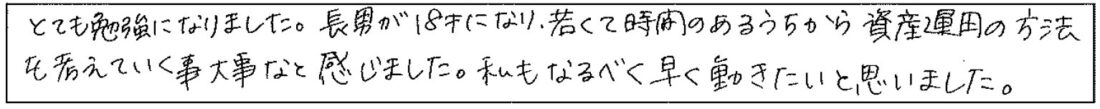 とても勉強になりました。長男が18才になり、若くて時間のあるうちから資産運用の方法
を考えていく事大事なと感じました。私もなるべく早く動きたいと思いました。